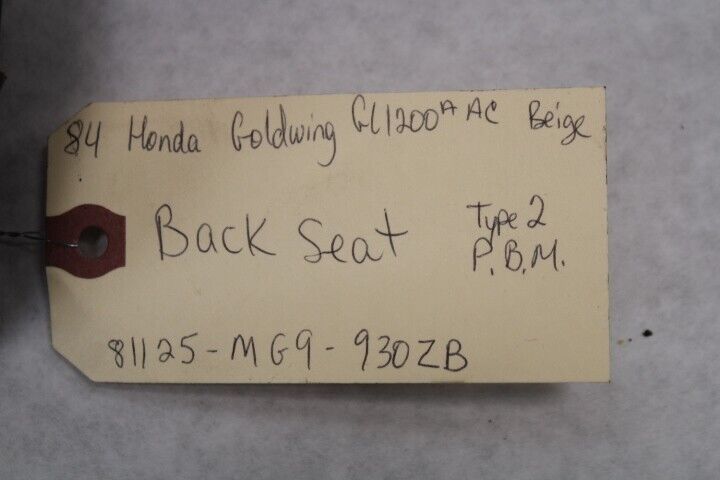 84 Honda Goldwing GL1200A AC Beige
Back Seat
Type 2
P.B.M.
81125-MG9-930ZB